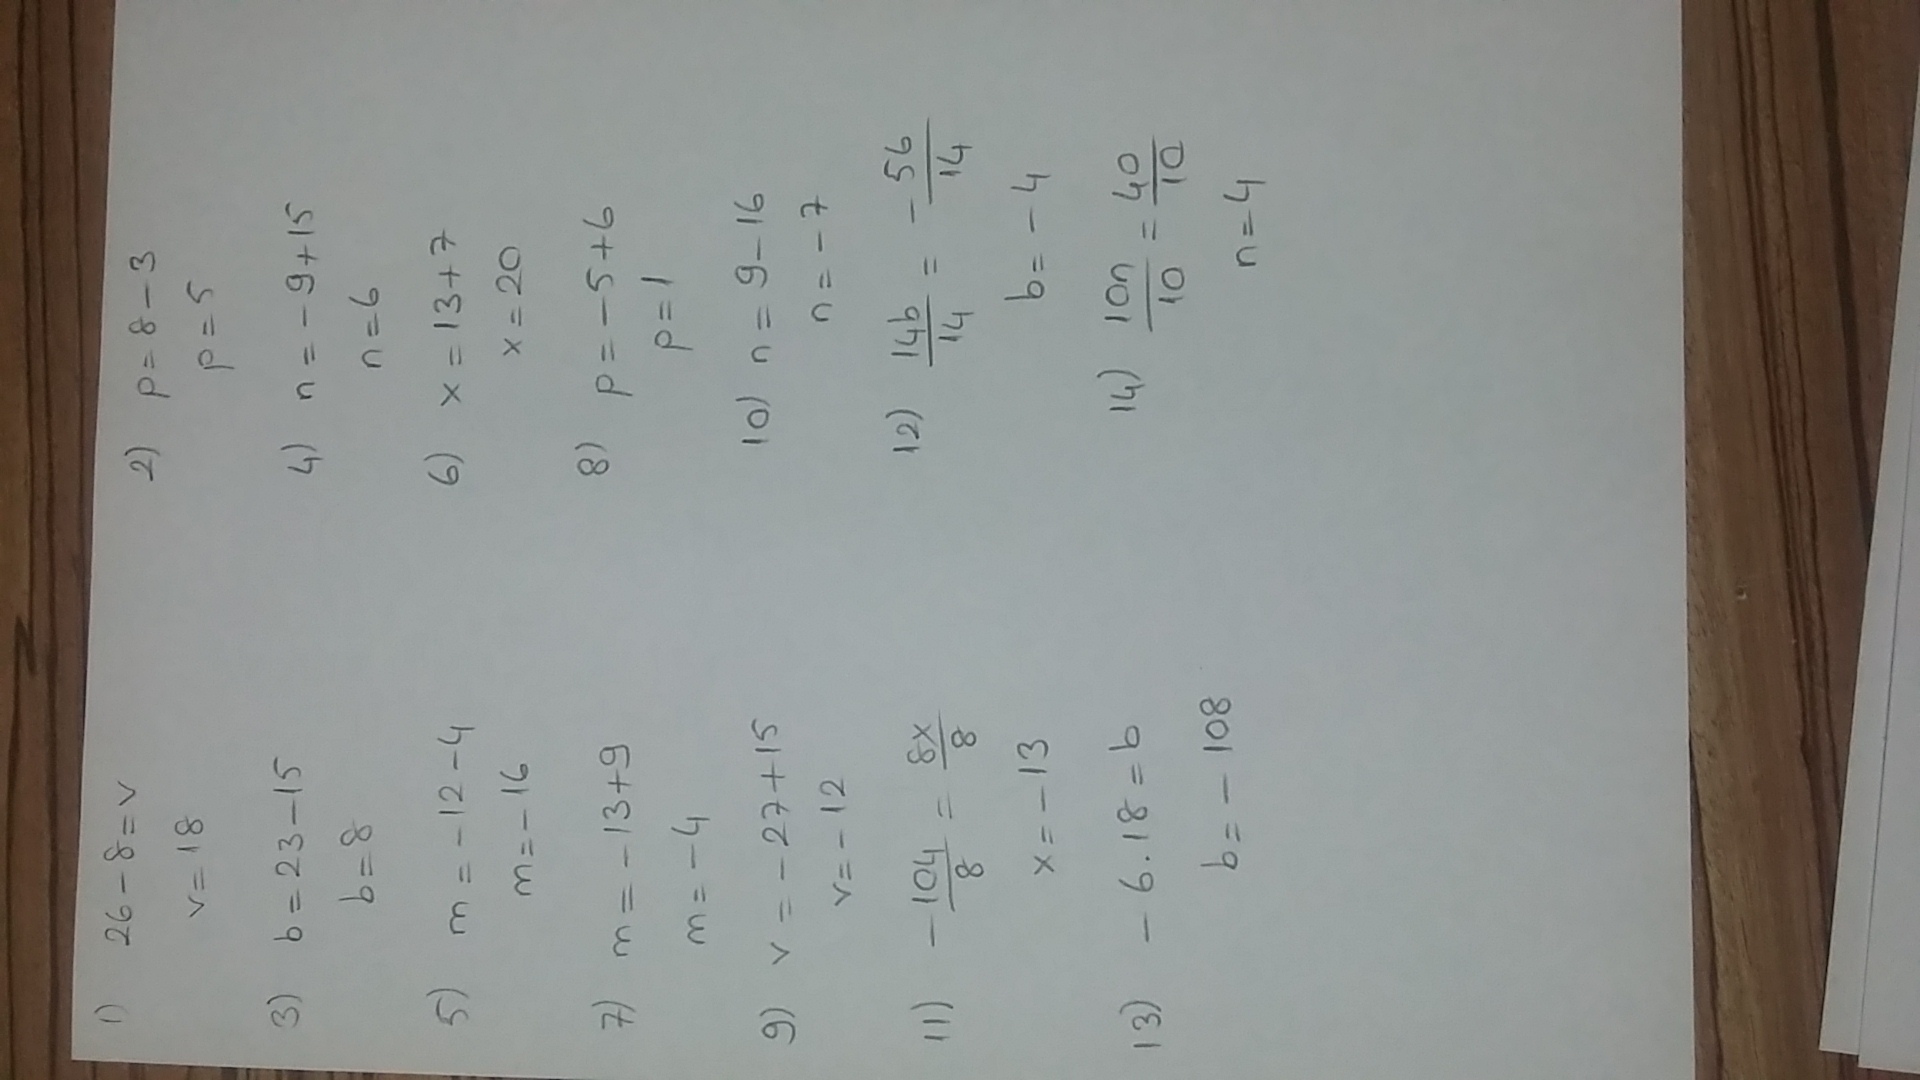 1) 26-8=v
v=18
2) p=8-3
p=5
3) b=23-15
b=8
4) n=-9+15
n=6
5) m=-12-4
m=-16
6) x=13+7
x=20
7) m=-13+9
m=-4
8) p=-5+6
p=1
9) v=-27+15
v=-12
10) n=9-16
n=-7
11) -104/8 = 8x/8
x=-13
12) 14b/14 = -56/14
b=-4
13) -6.18=b
b=-108
14) 10n/10 = 40/10
n=4